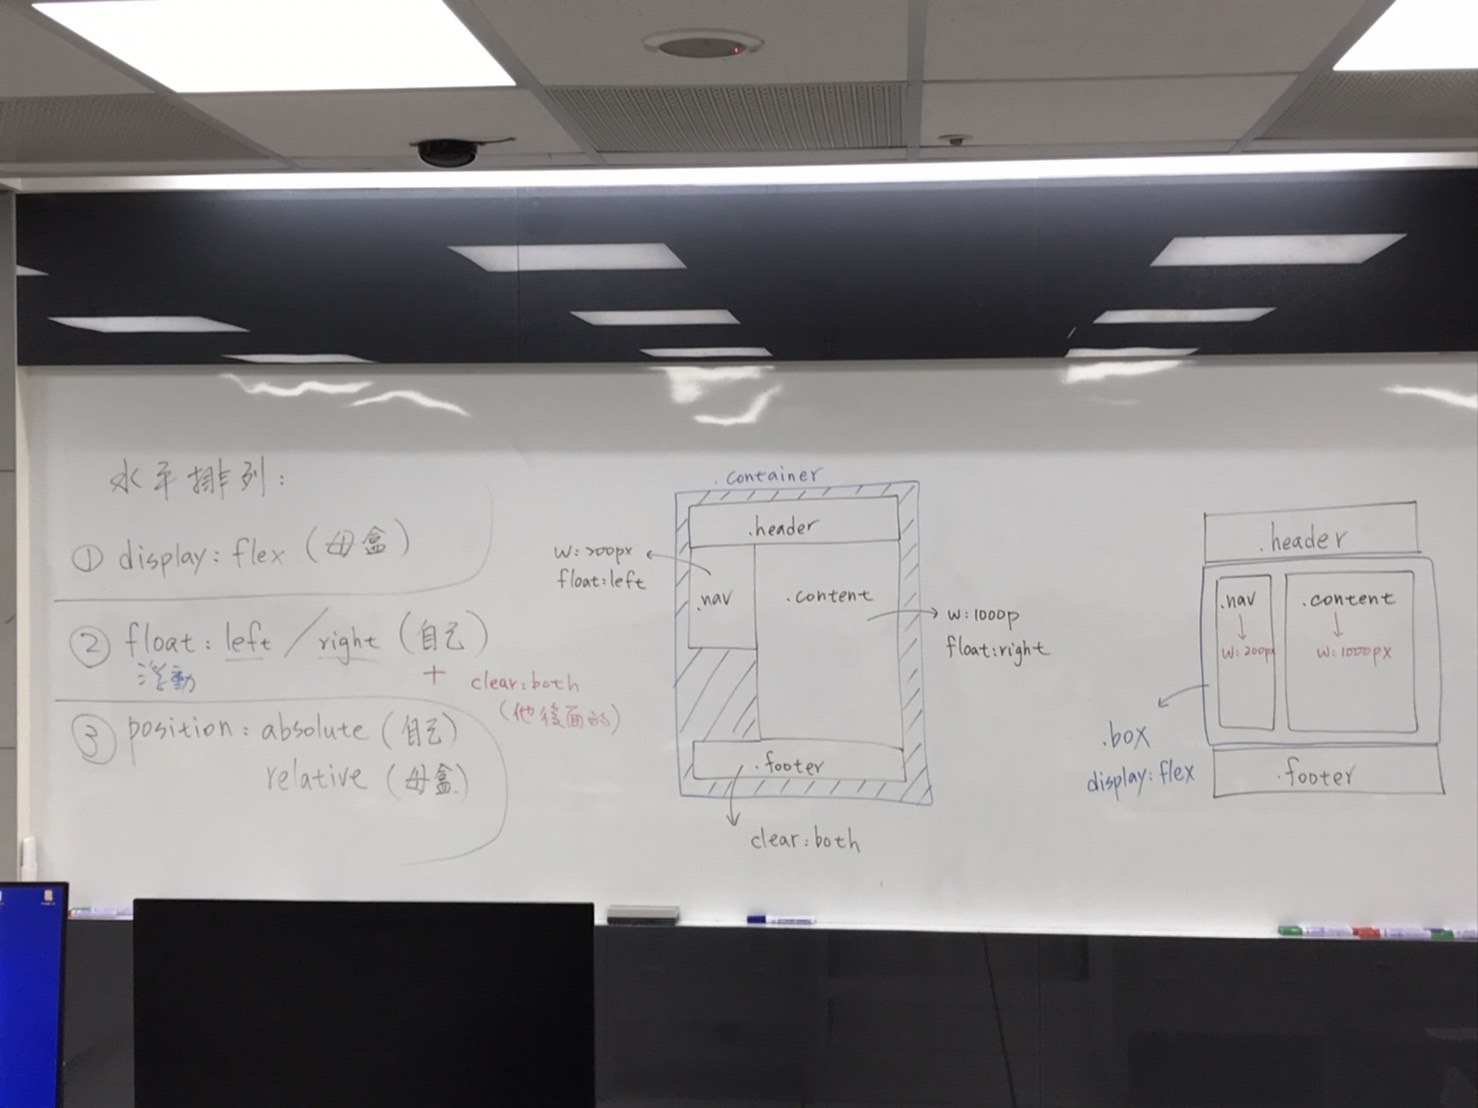 水平排列:
① display: flex (母盒)
② float: left / right (自己)
浮動
+ clear:both
(他後面的)
③ position: absolute (自己)
relative (母盒)
.container
.header
w:200px
float:left
.nav
.content
w:1000p
float:right
.footer
clear:both
.header
.nav
.content
w:200px
w:1000px
.box
display:flex
.footer